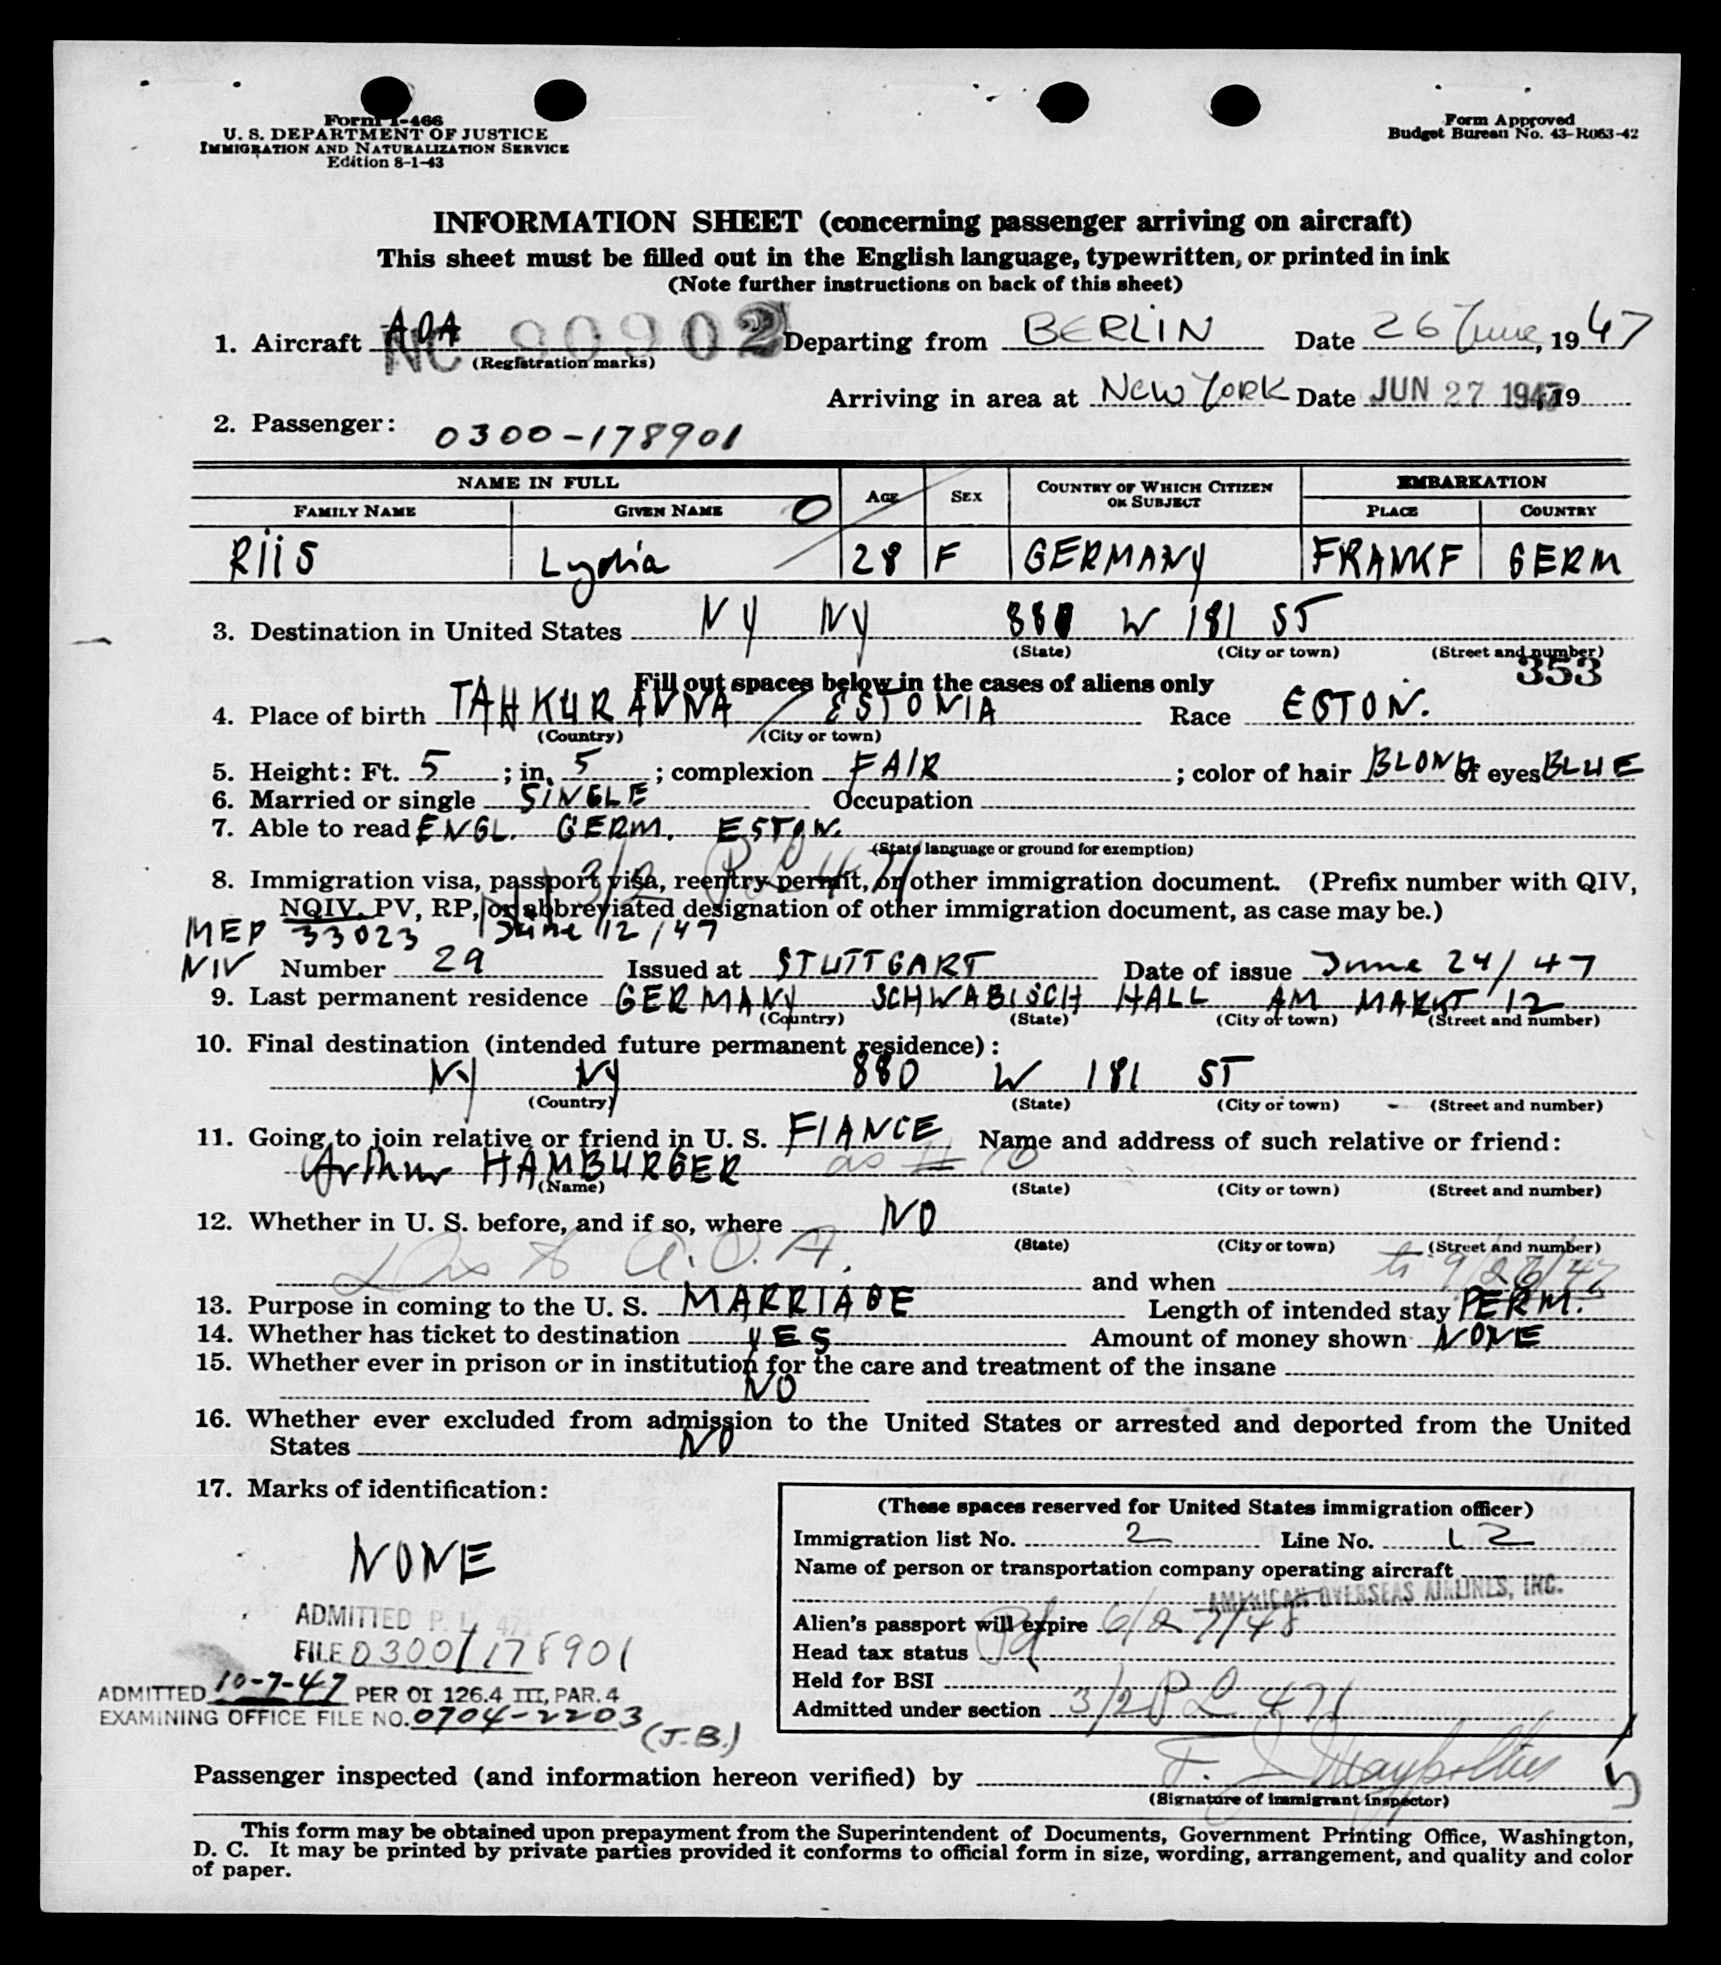 Form I-466
U. S. DEPARTMENT OF JUSTICE
IMMIGRATION AND NATURALIZATION SERVICE
Edition 8-1-43
Form Approved
Budget Bureau No. 43-R063-42
INFORMATION SHEET (concerning passenger arriving on aircraft)
This sheet must be filled out in the English language, typewritten, or printed in ink
(Note further instructions on back of this sheet)
1. Aircraft AOA NC 90902 Departing from BERLIN Date 26 June, 1947
(Registration marks)
Arriving in area at NEW YORK Date JUN 27 1947 19
2. Passenger: 0300-178901
NAME IN FULL AGE SEX COUNTRY OF WHICH CITIZEN OR SUBJECT EMBARKATION
FAMILY NAME GIVEN NAME PLACE COUNTRY
RIIS Lydia 28 F GERMANY FRANKF GERM
3. Destination in United States NY NY 880 W 181 ST
(State) (City or town) (Street and number)
353
Fill out spaces below in the cases of aliens only
4. Place of birth TAHKURANNA / ESTONIA Race ESTON.
(Country) (City or town)
5. Height: Ft. 5 ; in. 5 ; complexion FAIR ; color of hair BLOND of eyes BLUE
6. Married or single SINGLE Occupation
7. Able to read ENGL. GERM. ESTON.
(State language or ground for exemption)
3/2 PL 471
8. Immigration visa, passport visa, reentry permit, or other immigration document. (Prefix number with QIV,
NQIV, PV, RP, or abbreviated designation of other immigration document, as case may be.)
MEP 33023 June 12/47
NIV Number 29 Issued at STUTTGART Date of issue June 24/47
9. Last permanent residence GERMANY SCHWABISCH HALL AM MARKT 12
(Country) (State) (City or town) (Street and number)
10. Final destination (intended future permanent residence):
NY NY 880 W 181 ST
(Country) (State) (City or town) (Street and number)
11. Going to join relative or friend in U. S. FIANCE Name and address of such relative or friend:
Arthur HAMBURGER as # 10
(Name) (State) (City or town) (Street and number)
12. Whether in U. S. before, and if so, where NO
(State) (City or town) (Street and number)
to A.O.A. and when
13. Purpose in coming to the U. S. MARRIAGE Length of intended stay PERM.
14. Whether has ticket to destination YES Amount of money shown NONE
15. Whether ever in prison or in institution for the care and treatment of the insane
NO
16. Whether ever excluded from admission to the United States or arrested and deported from the United
States NO
17. Marks of identification:
NONE
ADMITTED P. L. 471
FILE 0300/178901
ADMITTED 10-7-47 PER OI 126.4 III, PAR. 4
EXAMINING OFFICE FILE NO. 0704-2203
(J.B.)
(These spaces reserved for United States immigration officer)
Immigration list No. 2 Line No. 12
Name of person or transportation company operating aircraft
AMERICAN OVERSEAS AIRLINES, INC.
Alien's passport will expire 6/27/48
Head tax status Pd
Held for BSI
Admitted under section 3/2 PL 471
Passenger inspected (and information hereon verified) by
(Signature of immigrant inspector)
This form may be obtained upon prepayment from the Superintendent of Documents, Government Printing Office, Washington,
D. C. It may be printed by private parties provided it conforms to official form in size, wording, arrangement, and quality and color
of paper.